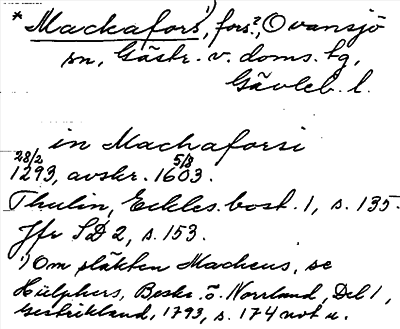 * Mackafors¹⁾, fors?, Ovansjö
sn, Gästr. v. doms. tg,
Gävleb. l.
in Machaforsi
28/2 1293, avskr. 5/8 1603.
Thulin, Eckles. bost. 1, s. 135.
Jfr SD 2, s. 153.
¹⁾ Om släkten Macheus, se
Hülphers, Beskr. ö. Norrland, Del 1,
Gestrikland, 1793, s. 174 not u.